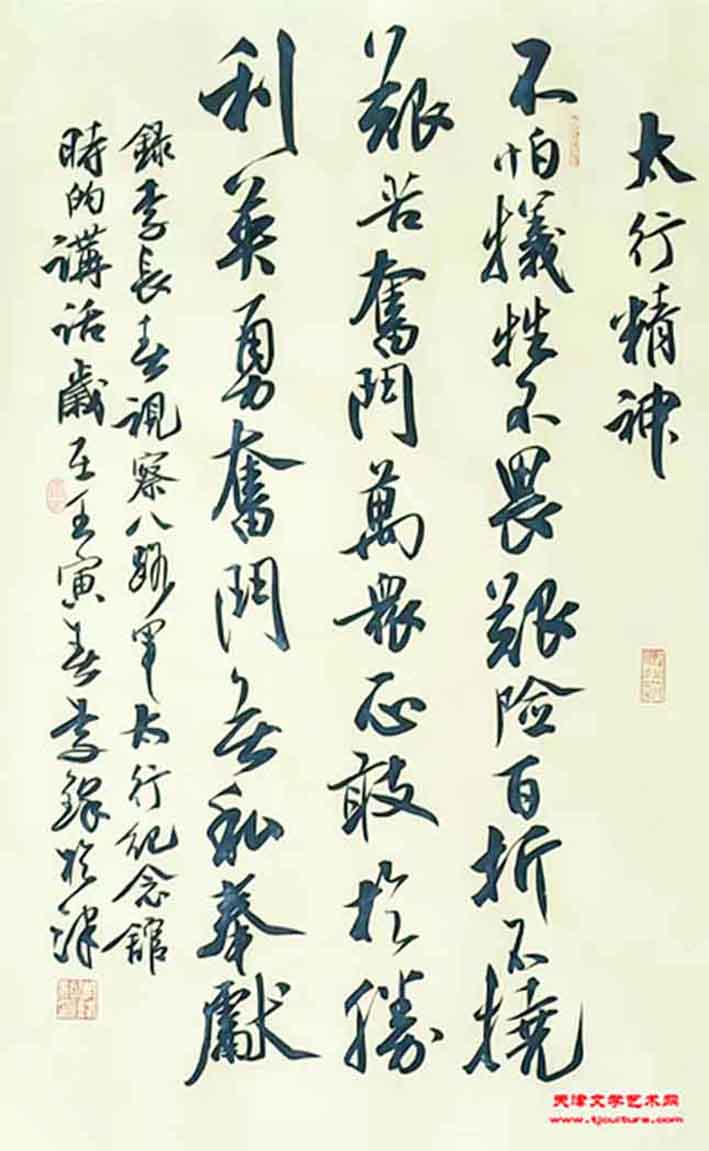 太行精神
不怕犧牲不畏艱险百折不撓
艱苦奮鬥萬衆一心敢於勝
利英勇奮鬥無私奉獻
錄李長春視察八路軍太行紀念館
時的講話歲在壬寅春李於津
天津文学艺术网
www.tjculture.com